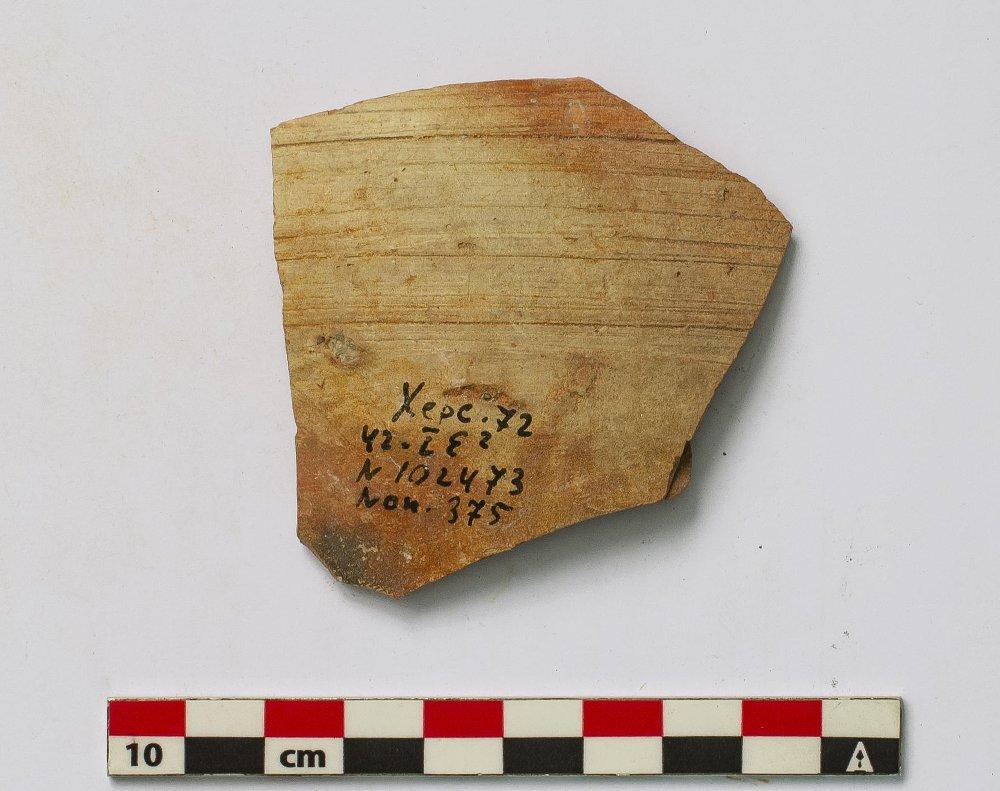 Херс. 72
42-ĪE²
N 102473
Поп. 375
10 cm
A